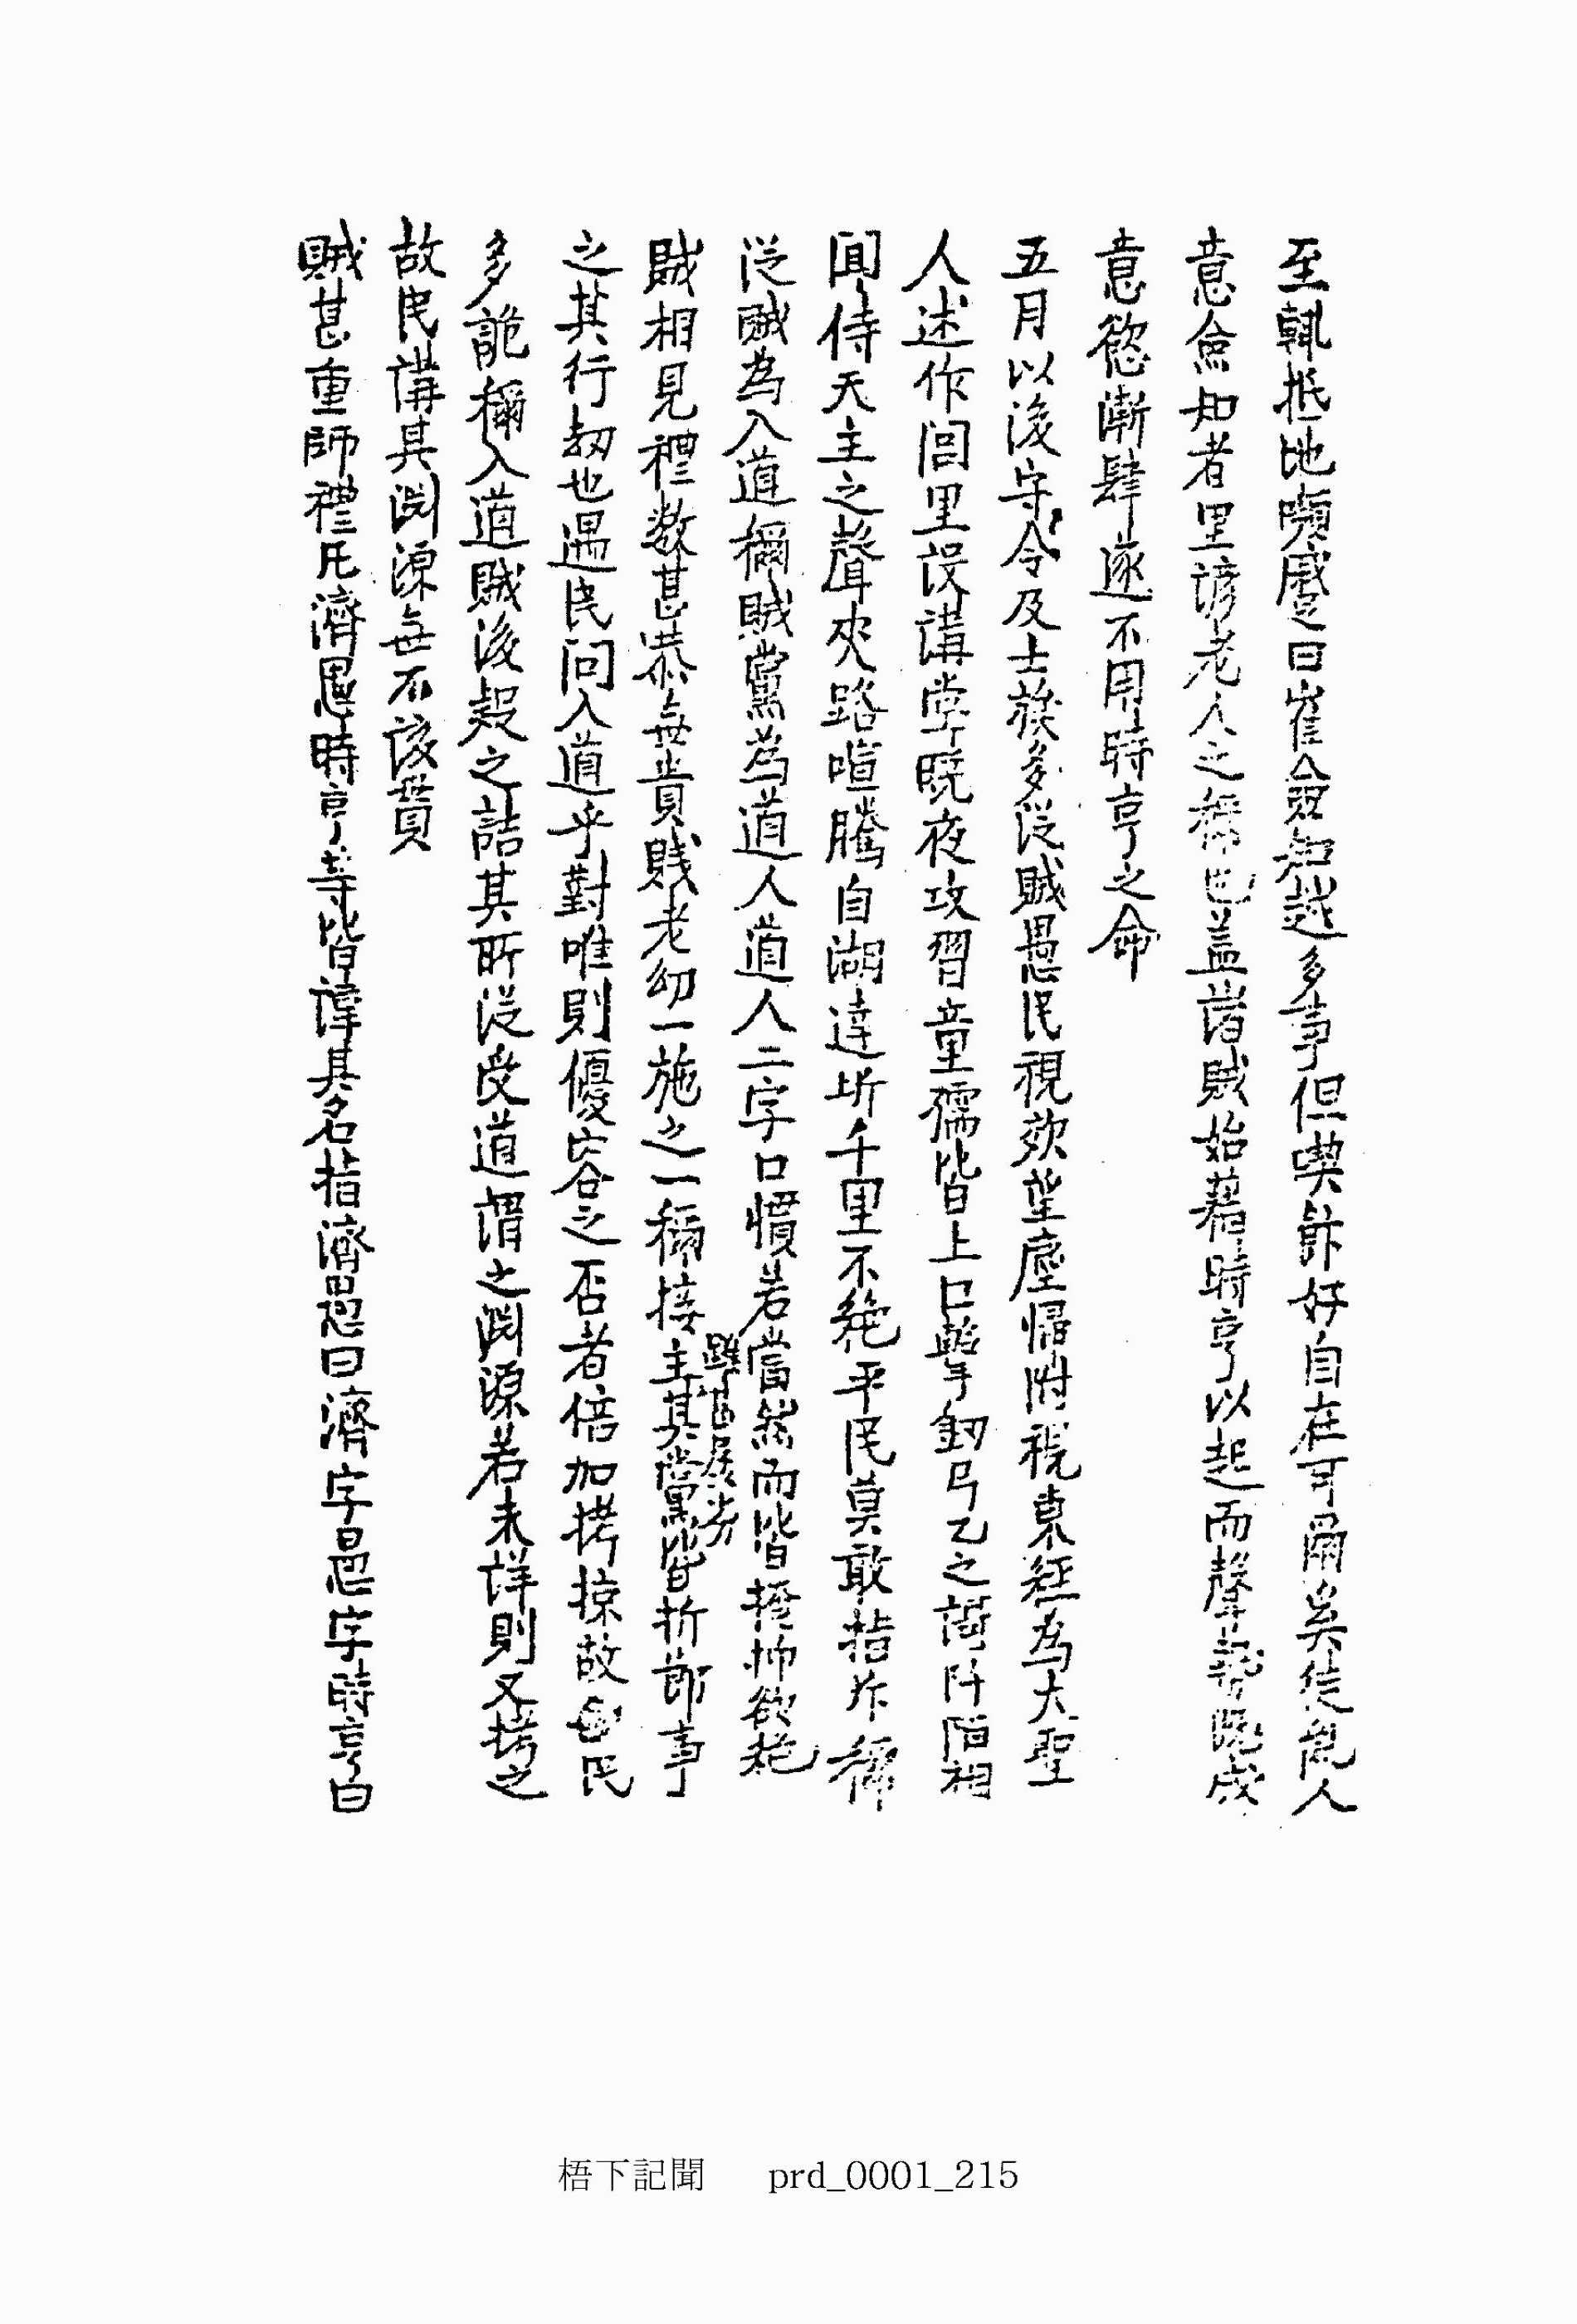 至輒抵地嚬蹙曰崔僉知越多事但喫飯好自在可爾奚徒亂人
意僉知者里諺老人之稱也盖諸賊始藉時亨以起而聲勢既成
意慾漸肆遂不用時亨之命
五月以後守令及士族多從賊愚民視效望塵歸附視東經爲大聖
人述作閭里設講堂曉夜攻習童孺皆上口擊釰弓乙之謌阡陌相
聞侍天主之聲夾路喧騰自湖達圻千里不絶平民莫敢指斥稱
從賊爲入道稱賊黨爲道人道人二字口慣若當然而皆掩抑欲絶
賊相見禮數甚恭無貴賤老幼一施之一稱接主其黨皆折節事
之其行劫也遇民问入道乎對唯則優容之否者倍加拷掠故愚民
多詭稱入道賊後覺之詰其所從受道謂之渕源若未詳則又拷之
故民講其渕源無不該貫
賊甚重師禮凡濟愚時亨等皆諱其名指濟愚曰濟字愚字時亨曰
梧下記聞 prd_0001_215